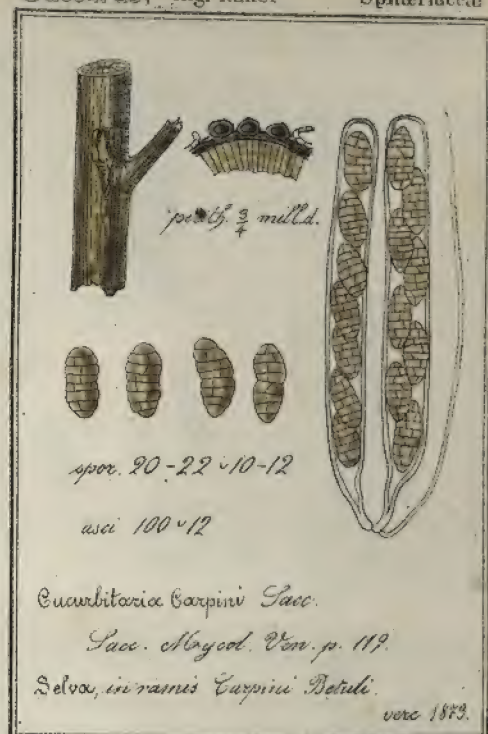 perith. 3/4 mill.d.
spor. 20-22 ᵕ 10-12
asci 100 ᵕ 12
Cucurbitaria Carpini Sacc.
Sacc. Mycol. Ven. p. 119.
Selva, in ramis Carpini Betuli.
vere 1873.